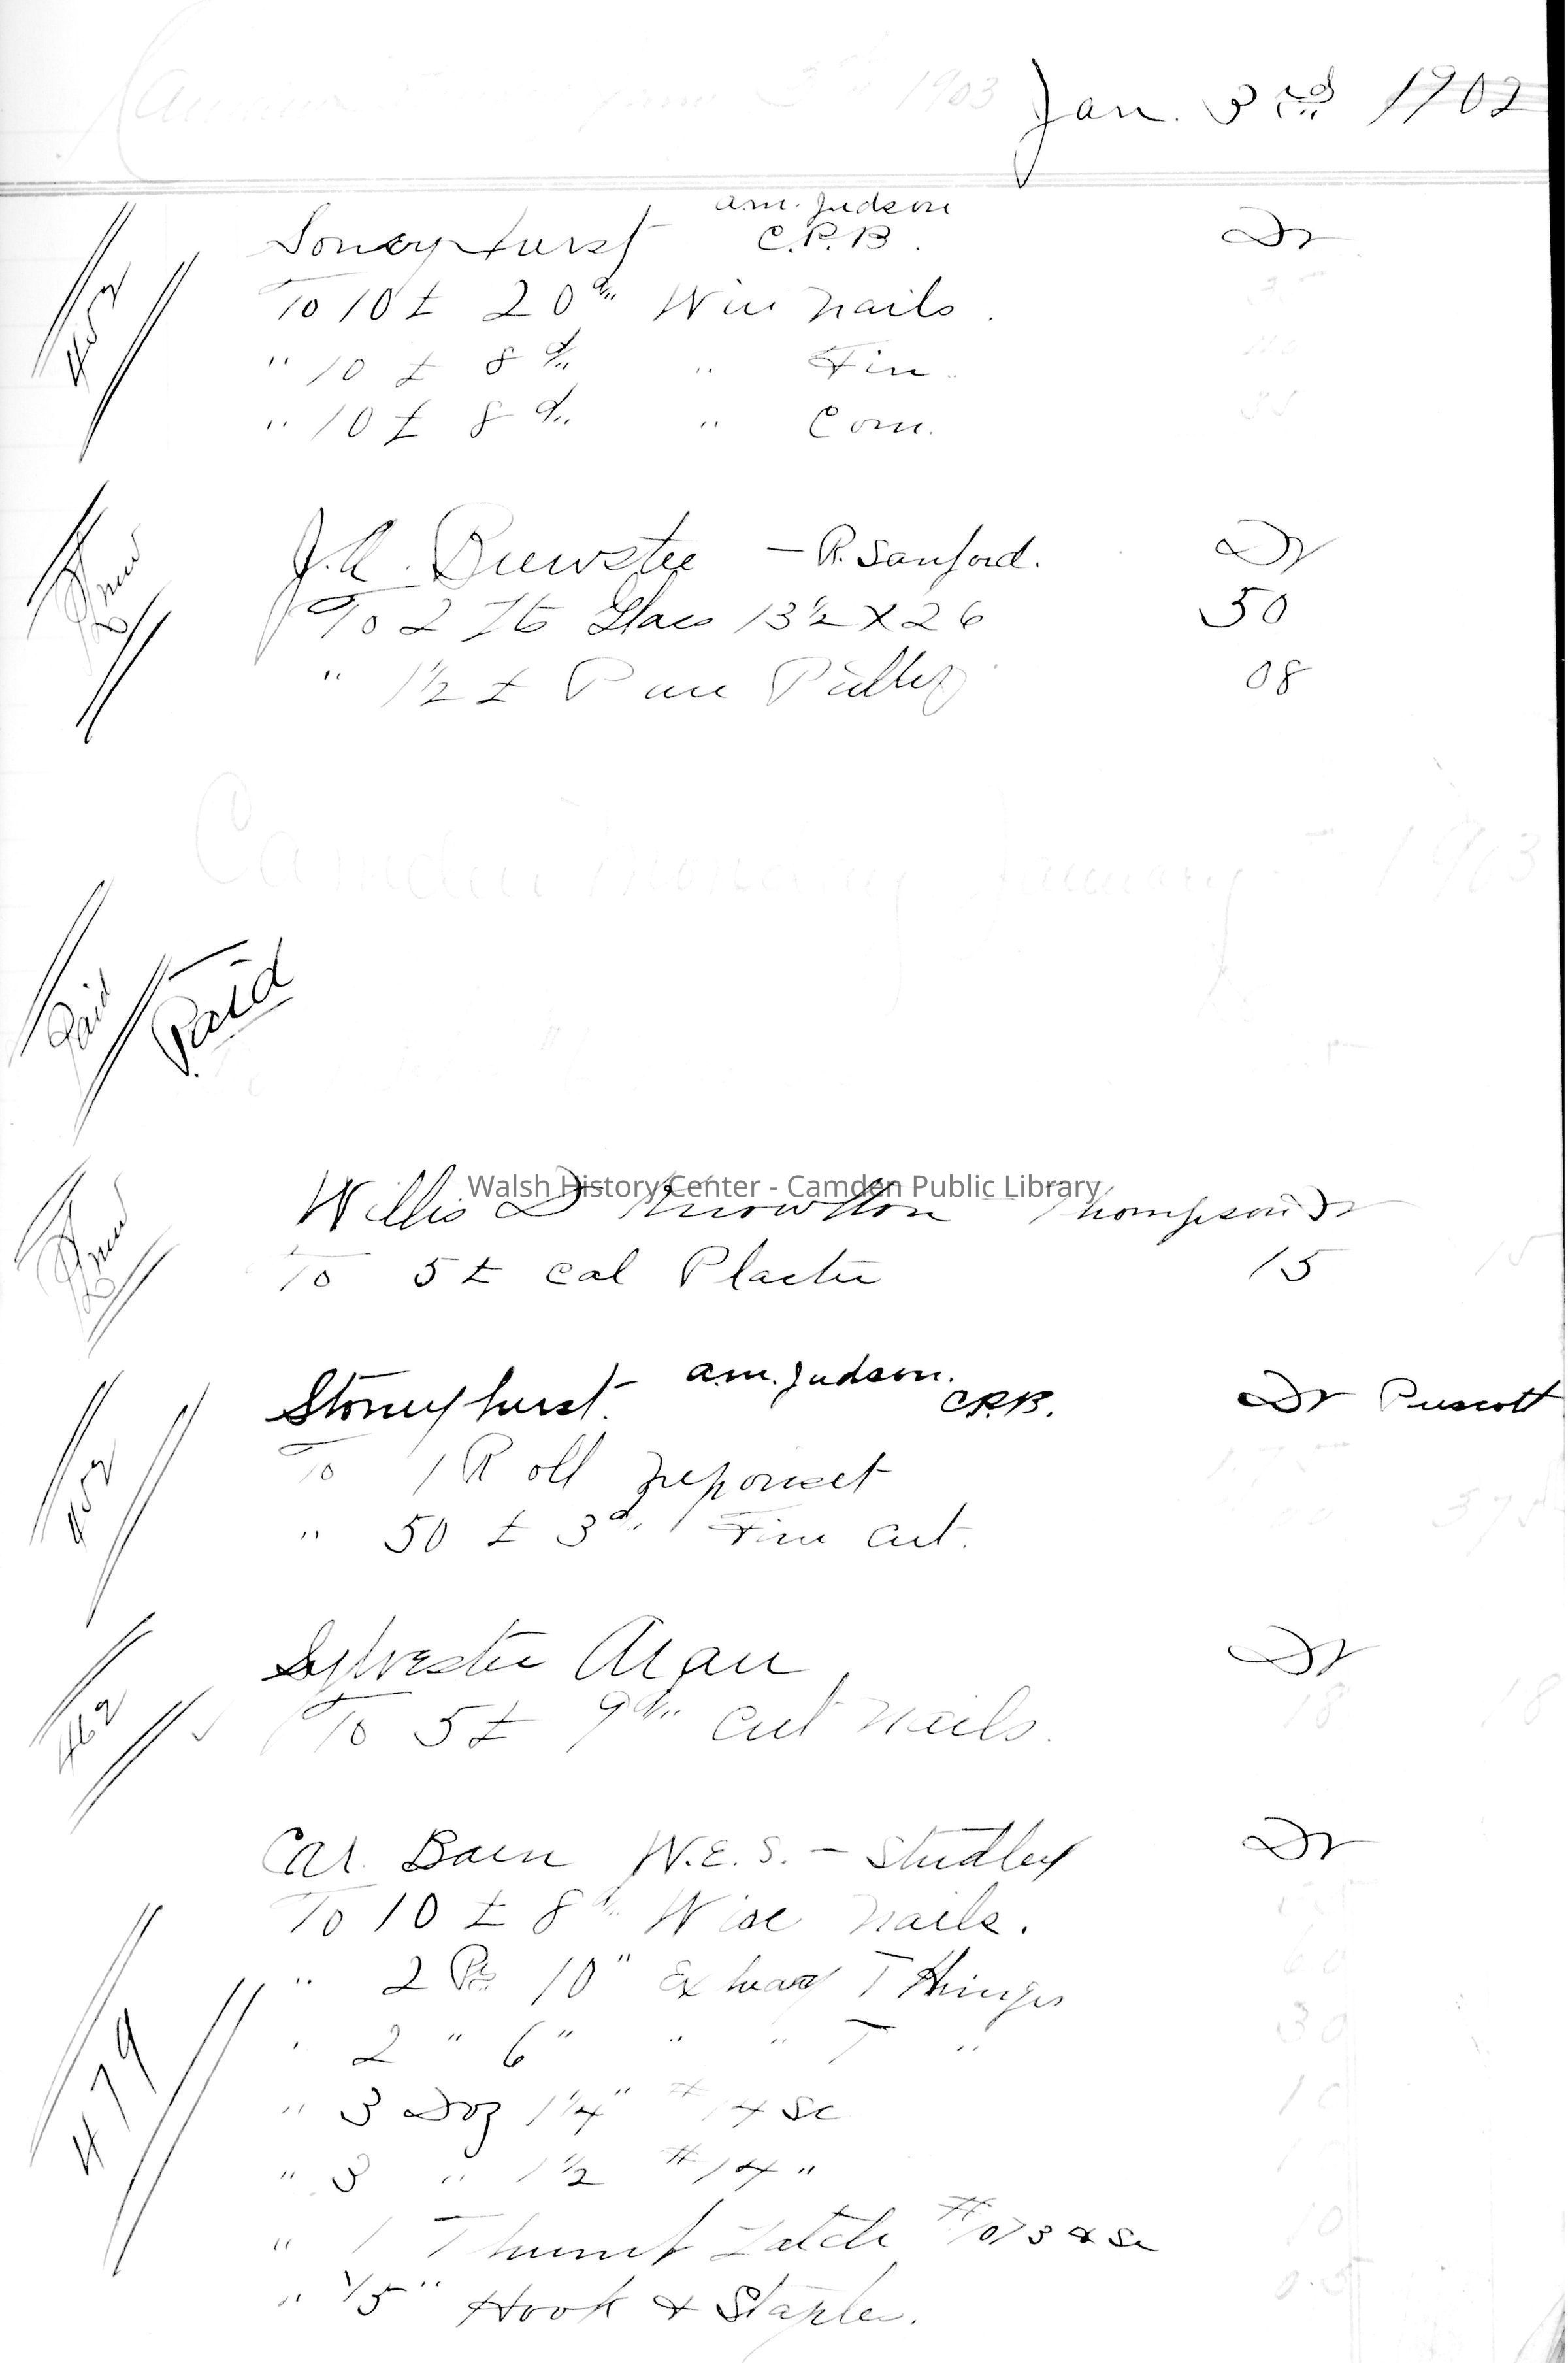 Jan. 3rd 1902
1903
a.m. Judson
Stoneyhurst C.P.B. Dr
452
To 10 £ 20d Wire nails.
" 10 £ 8d " Fin.
" 10 £ 8d " Com.
J.A. Brewster - R. Sanford. Dr
To 2 Lts Glass 13 1/2 X 26 50
" 1 1/2 £ Pure Putty 08
Camden Monday January 1903
Paid Paid
Walsh History Center - Camden Public Library
Willis D Knowlton - Thompson Dr
To 5 £ Cal Plaster 15 15
Stoneyhurst. a.m. Judson. C.P.B. Dr Prescott
452
To 1 Roll Neponset
" 50 £ 3d Fine Cut.
Sylvester Arau Dr
462
To 5 £ 9d Cut nails. 18 18
Car Barn W.E.S. - Studley Dr
479
To 10 £ 8d Wire nails.
" 2 Prs 10" Ex heavy T Hinges 60
" 2 " 6" " " T " 30
" 3 Doz 1 1/4" #14 Sc
" 3 " 1 1/2 #14 "
" 1 Thumb Latch #1073 & Sc 10
" 1/5" Hook & Staples. 05